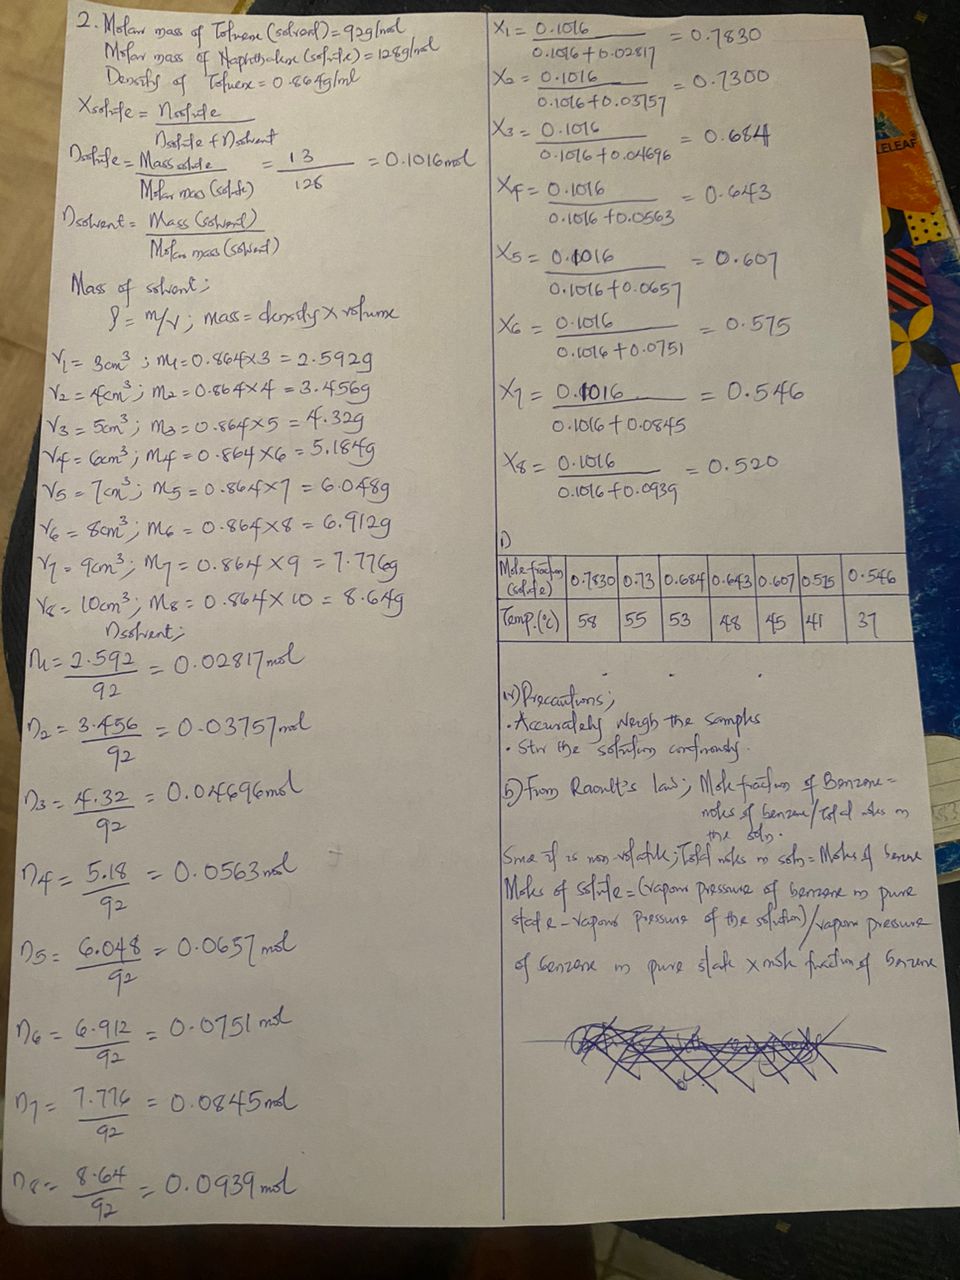 2. Molar mass of Toluene (solvent) = 92g/mol
Molar mass of Naphthalene (solute) = 128g/mol
Density of Toluene = 0.864g/ml
Xsolute = nsolute
nsolute + nsolvent
nsolute = Mass solute = 13 = 0.1016mol
Molar mass (solute) 128
nsolvent = Mass (solvent)
Molar mass (solvent)
Mass of solvent;
ρ = m/v ; mass = density × volume
V1 = 3cm³ ; m1 = 0.864×3 = 2.592g
V2 = 4cm³ ; m2 = 0.864×4 = 3.456g
V3 = 5cm³ ; m3 = 0.864×5 = 4.32g
V4 = 6cm³ ; m4 = 0.864×6 = 5.184g
V5 = 7cm³ ; m5 = 0.864×7 = 6.048g
V6 = 8cm³ ; m6 = 0.864×8 = 6.912g
V7 = 9cm³ ; m7 = 0.864×9 = 7.776g
V8 = 10cm³ ; m8 = 0.864×10 = 8.64g
nsolvent;
n1 = 2.592 = 0.02817mol
92
n2 = 3.456 = 0.03757mol
92
n3 = 4.32 = 0.04696mol
92
n4 = 5.18 = 0.0563mol
92
n5 = 6.048 = 0.0657mol
92
n6 = 6.912 = 0.0751mol
92
n7 = 7.776 = 0.0845mol
92
n8 = 8.64 = 0.0939mol
92
X1 = 0.1016 = 0.7830
0.1016+0.02817
X2 = 0.1016 = 0.7300
0.1016+0.03757
X3 = 0.1016 = 0.684
0.1016+0.04696
X4 = 0.1016 = 0.643
0.1016+0.0563
X5 = 0.1016 = 0.607
0.1016+0.0657
X6 = 0.1016 = 0.575
0.1016+0.0751
X7 = 0.1016 = 0.546
0.1016+0.0845
X8 = 0.1016 = 0.520
0.1016+0.0939
i)
Mole fraction (solute) 0.7830 0.73 0.684 0.643 0.607 0.575 0.546
Temp.(°c) 58 55 53 48 45 41 37
iv) Precautions;
• Accurately weigh the samples
• Stir the solution continously.
b) From Raoult's law; Mole fraction of Benzene =
moles of benzene/Total moles in
the soln.
Since it is non-volatile; Total moles in soln = Moles of benzene
Moles of solute = (vapour pressure of benzene in pure
state - vapour pressure of the solution)/vapour pressure
of benzene in pure state × mole fraction of benzene
LELEAF